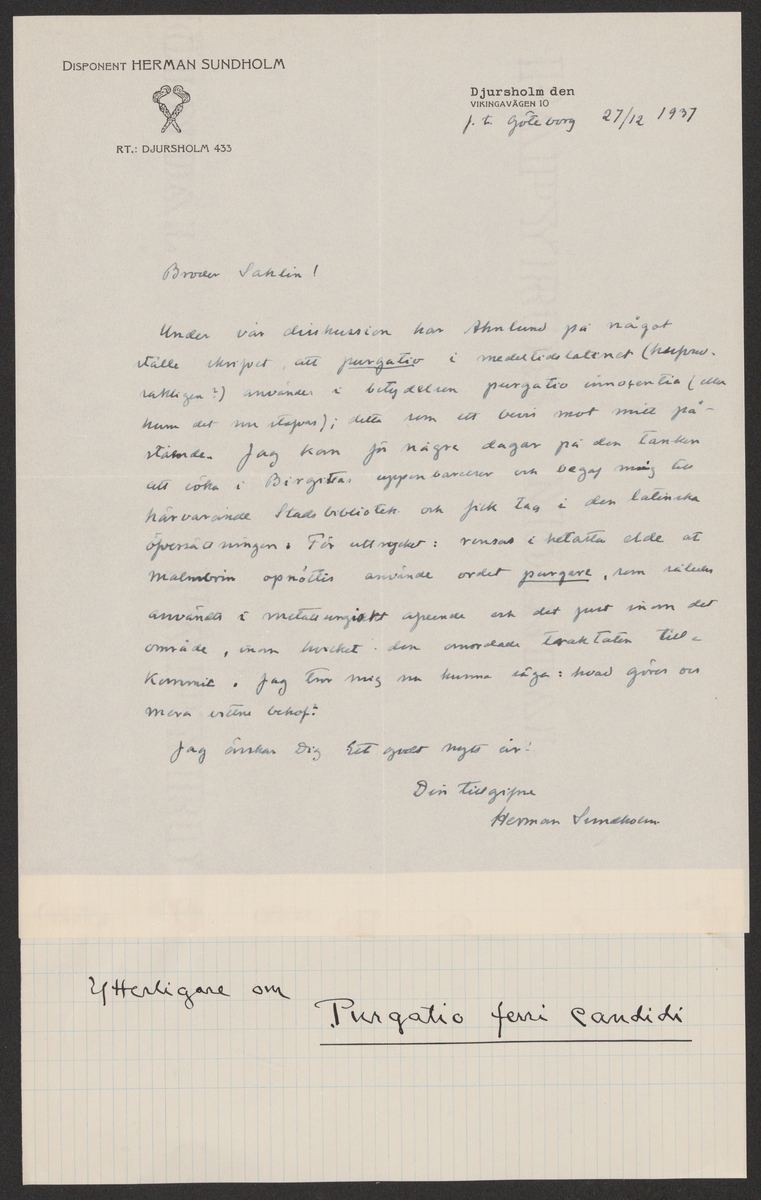 DISPONENT HERMAN SUNDHOLM
RT.: DJURSHOLM 433
Djursholm den
VIKINGAVÄGEN 10
f. t. Göteborg 27/12 1937
Broder Sahlin!
Under vår diskussion har Ahnlund på något
ställe skrifvit, att purgatio i medeltidslatinet (
?) användes i betydelsen purgatio innocentia (eller
hur det nu stafvas); detta som ett bevis mot mitt på-
stående. Jag kom för några dagar på den tanken
att söka i Birgittas uppenbarelser och begaf mig till
härvarande Stadsbibliotek och fick tag i den latinska
öfversättningen. För uttrycket: rensas i hetasta elde at
malmbrin opnöttis använde ordet purgare, som således
användts i metallurgiskt afseende och det just inom det
område, inom hvilket den omordade traktaten till-
kommit. Jag tror mig nu kunna säga: hvad göres oss
mera vittne behof?
Jag önskar Dig Ett godt nytt år!
Din tillgifne
Herman Sundholm
Ytterligare om
Purgatio ferri candidi